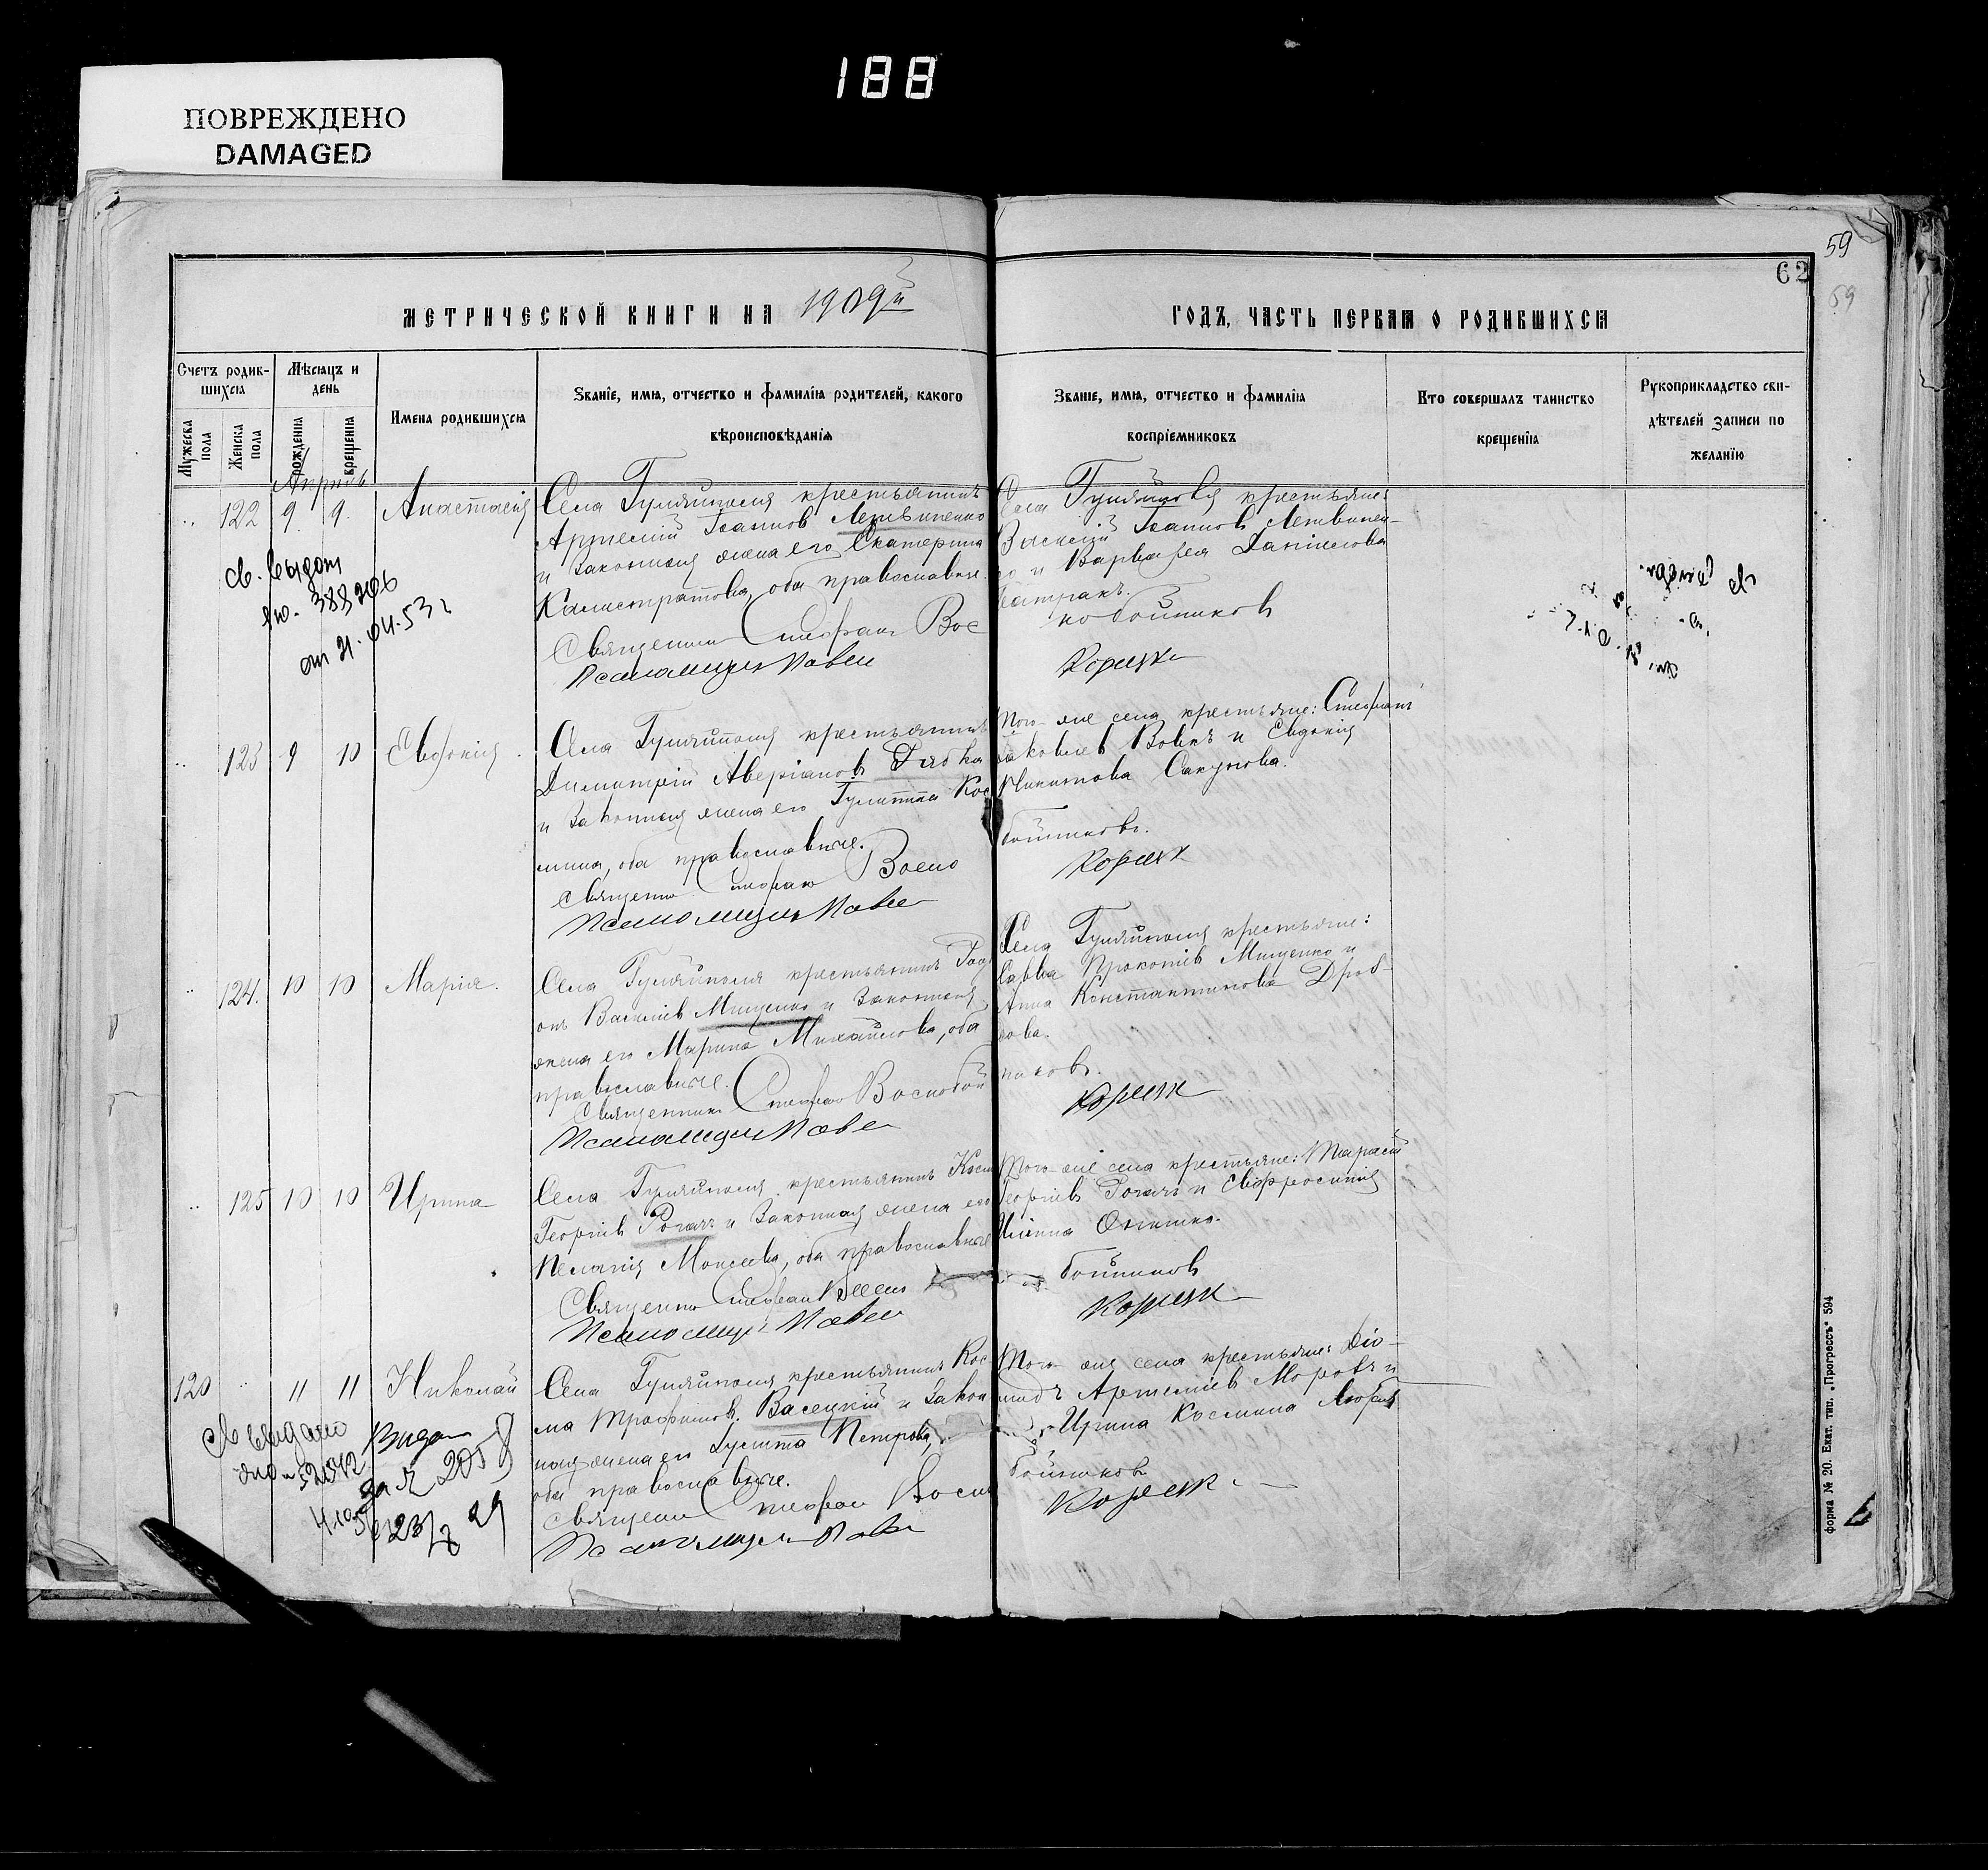 188
ПОВРЕЖДЕНО
DAMAGED
59
62
59
МЕТРИЧЕСКОЙ КНИГИ НА 1909й
ГОДЪ, ЧАСТЬ ПЕРВАЯ О РОДИВШИХСЯ
Счетъ родив-
шихся
Мужеска пола
Женска пола
Мѣсяцъ и
день
рожденія
крещенія
Имена родившихся
Званіе, имя, отчество и фамилія родителей, какого
вѣроисповѣданія
Званіе, имя, отчество и фамилія
воспріемниковъ
Кто совершалъ таинство
крещенія
Рукоприкладство сви-
дѣтелей записи по
желанію
Апрель
122 9. 9. Анастасія
Села Гуляйполя крестьянинъ
Артемій Іоаннов Литвиненко
и законная жена его Екатерина
Калистратова, оба православные.
Священник Стефан Вос
Псаломщик Павел
Села Гуляйполя крестьяне:
Василій Іоаннов Литвинен-
ко и Варвара Даніилова
кобойников
Корсун
св. выдан
от 21.04.53 г
123 9 10 Евдокія
Села Гуляйполя крестьянинъ
Димитрій Аверіанов Рябка
и законная жена его Гулитта Кос
мина, оба православные.
Священник Стефан Воско
Псаломщик Павел
Того-же села крестьяне: Стефанъ
Яковлев Вовкъ и Евдокія
Никитова Сакунова.
бойников.
124. 10 10 Марія.
Села Гуляйполя крестьянинъ Род
онъ Василіев Мищенко и законная
жена его Марина Михайлова, оба
православные.
Священник Стефан Воскобой
Псаломщик Павел
Села Гуляйполя крестьяне:
Савва Прокопіев Мищенко и
Анна Константинова Дроб-
кова.
ников.
125 10 10 Ирина
Села Гуляйполя крестьянинъ Косм
Георгіев Рогачъ и законная жена его
Пелагія Моисеева, оба православные
Священник Стефан
Псаломщик Павел
Того-же села крестьяне: Тарасій
Георгіев Рогачъ и Евфросинія
бойников
120 11 11 Николай
Села Гуляйполя крестьянинъ Кос
ма Трофимов. Васецкій и закон
ная жена его Гулитта Петрова,
оба православные.
Священник Стефан Воск
Псаломщик Павел
Того-же села крестьяне: Діо-
мидъ Артеміев Морозъ и
Ирина Космина
бойников
св выдано
форма № 20. Екат. тип. „Прогрессъ“ 594